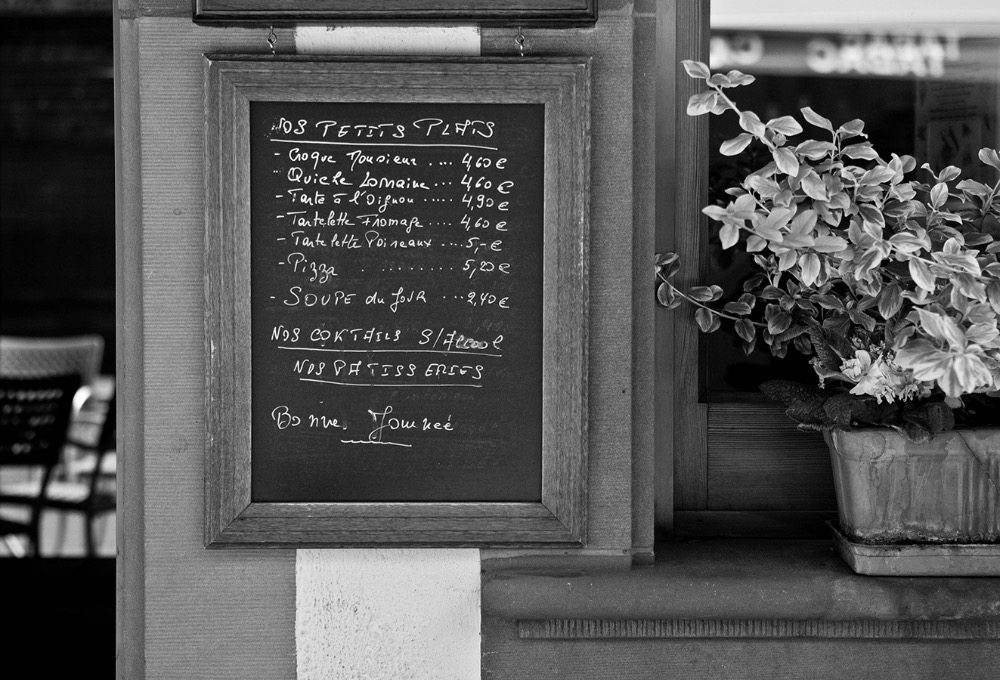 NOS PETITS PLATS
- Croque Monsieur .... 4,60 €
- Quiche Lorraine ... 4,60 €
- Tarte à l'Oignon ..... 4,90 €
- Tartelette Fromage .... 4,60 €
- Tartelette Poireaux .... 5,- €
- Pizza ......... 5,20 €
- SOUPE du JOUR ... 2,40 €
NOS COKTAILS S/Alcool
NOS PATISSERIES
Bonne Journeé